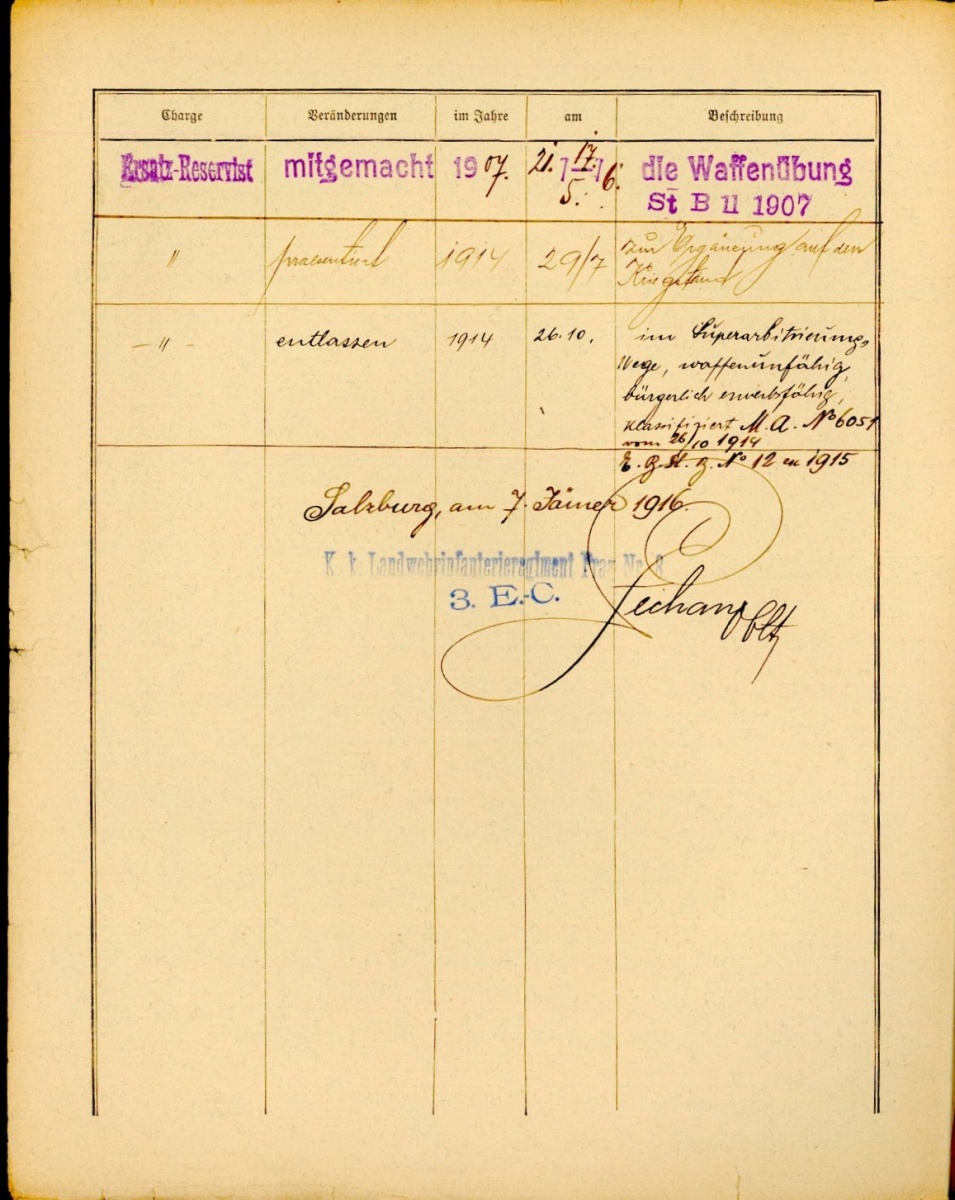 Charge Veränderungen im Jahre am Beschreibung
Ersatz-Reservist mitgemacht 1907. 21./5. 17./6. die Waffenübung
St B II 1907
" praesentiert 1914 29/7 zur Ergänzung auf den
Kriegstand
– " – entlassen 1914 26.10. im Superarbitrierungs-
Wege, waffenunfähig,
bürgerlich erwerbsfähig,
klassifiziert M. A. No 6051
vom 26/10 1914
E. B. St. B. No 12 ex 1915
Salzburg, am 7. Jänner 1916.
K. k. Landwehrinfanterieregiment Prag Nr. 8
3. E.-C.
Oblt